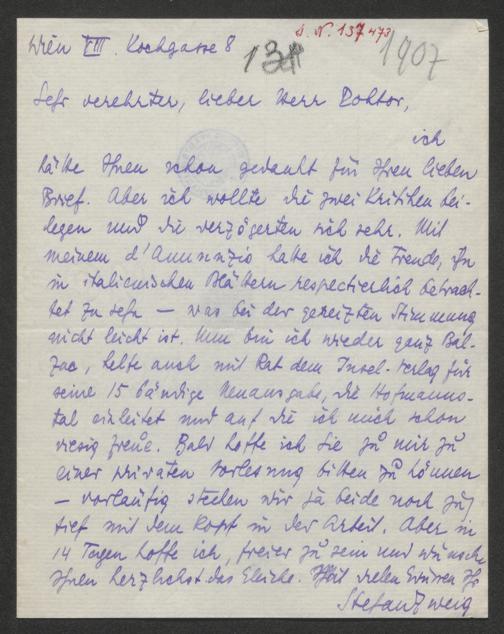 I. N. 137473
Wien VIII. Kochgasse 8
1907
Sehr verehrter, lieber Herr Doktor,
ich
hätte Ihnen schon gedankt für Ihren lieben
Brief. Aber ich wollte die zwei Kritiken bei-
legen und die verzögerten sich sehr. Mit
meinem d'Annunzio habe ich die Freude, ihn
in italienischen Blättern respectierlich betrach-
tet zu sehn – was bei der gereizten Stimmung
nicht leicht ist. Nun bin ich wieder ganz Bal-
zac, helfe auch mit Rat dem Insel-Verlag für
seine 15 bändige Neuausgabe, die Hofmanns-
tal einleitet und auf die ich mich schon
riesig freue. Bald hoffe ich Sie zu mir zu
einer privaten Vorlesung bitten zu können
– vorläufig stecken wir ja beide noch zu
tief mit dem Kopf in der Arbeit. Aber in
14 Tagen hoffe ich, freier zu sein und wünsche
Ihnen herzlichst das Gleiche. Mit vielen Grüssen Ihr
Stefan Zweig